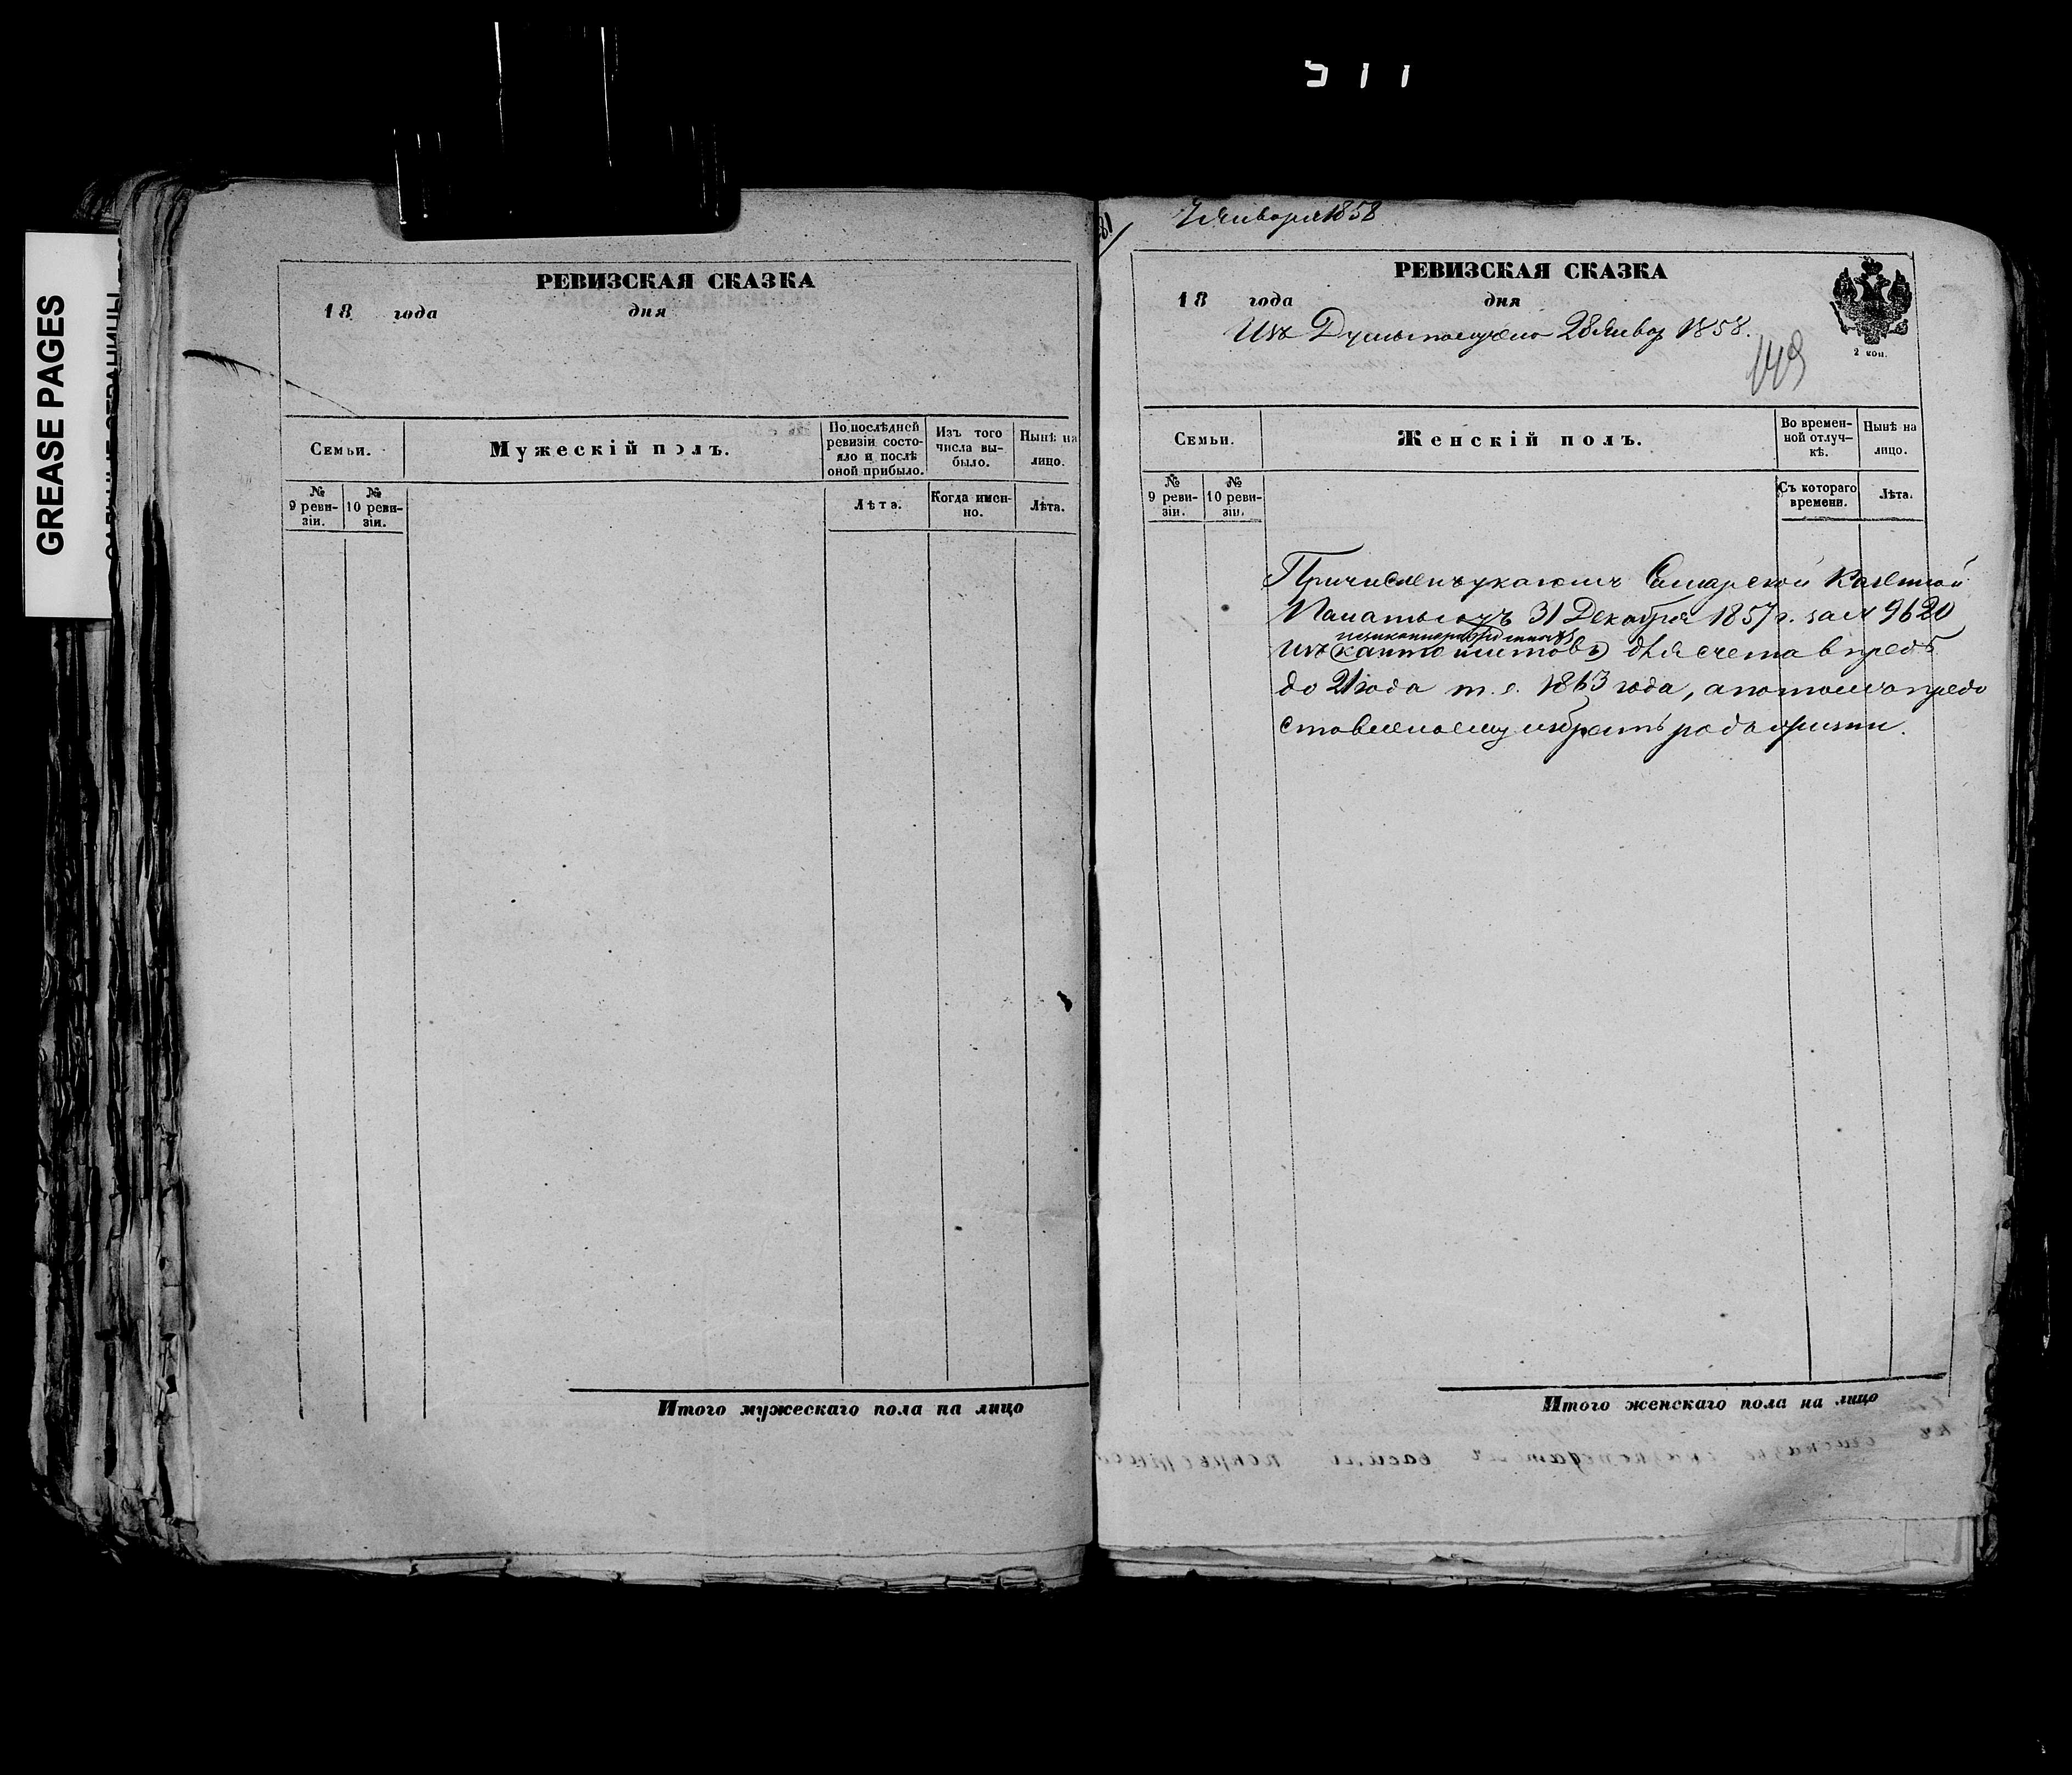 511
GREASE PAGES
РЕВИЗСКАЯ СКАЗКА
18 года дня
Семьи.
Мужескій полъ.
По послѣдней ревизіи состояло и послѣ оной прибыло.
Изъ того числа выбыло.
Нынѣ на лицо.
№ 9 ревизіи.
№ 10 ревизіи.
Лѣта.
Когда именно.
Лѣта.
Итого мужескаго пола на лицо
81
7 Января 1858
РЕВИЗСКАЯ СКАЗКА
18 года дня
2 коп.
Изъ Думы получено 28 Январ 1858.
149
Семьи.
Женскій полъ.
Во временной отлучкѣ.
Нынѣ на лицо.
№ 9 ревизіи.
№ 10 ревизіи.
Съ котораго времени.
Лѣта.
Причисленъ указомъ Самарской Казенной
Палаты 31 Декабря 1857 г. за № 9620
изъ кантонистовъ для счета впредь
до 21 года т. е. 1863 года, а потому предо
ставлено ему избрать родъ жизни.
Итого женскаго пола на лицо